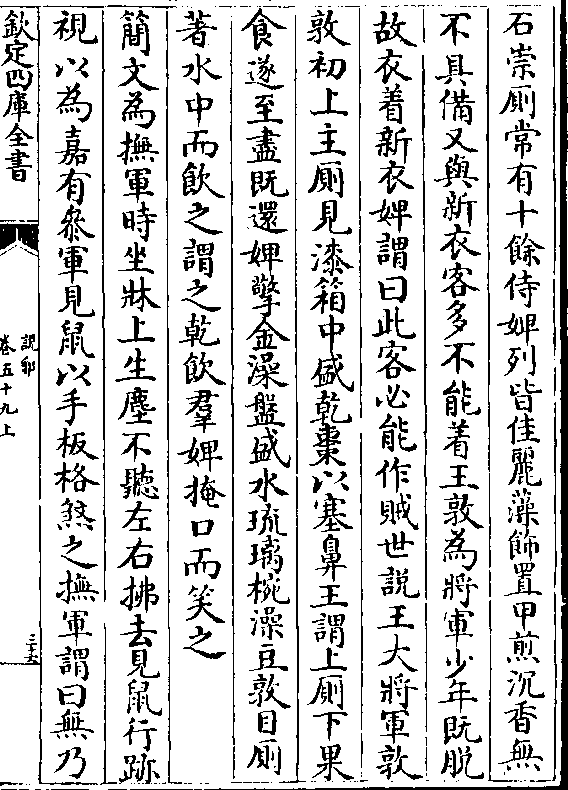 石崇厠常有十餘侍婢列皆佳麗藻飾置甲煎沉香無
不具備又與新衣客多不能着王敦為將軍少年既脱
故衣着新衣婢謂曰此客必能作賊世説王大將軍敦
敦初上主厠見漆箱中盛乾棗以塞鼻王謂上厠下果
食遂至盡既還婢擎金澡盤盛水琉璃椀澡豆敦目厠
著水中而飲之謂之乾飲羣婢掩口而笑之
簡文為撫軍時坐牀上生塵不聽左右拂去見鼠行跡
視以為嘉有叅軍見鼠以手板格煞之撫軍謂曰無乃
欽定四庫全書
説郛
卷五十九上
三十六